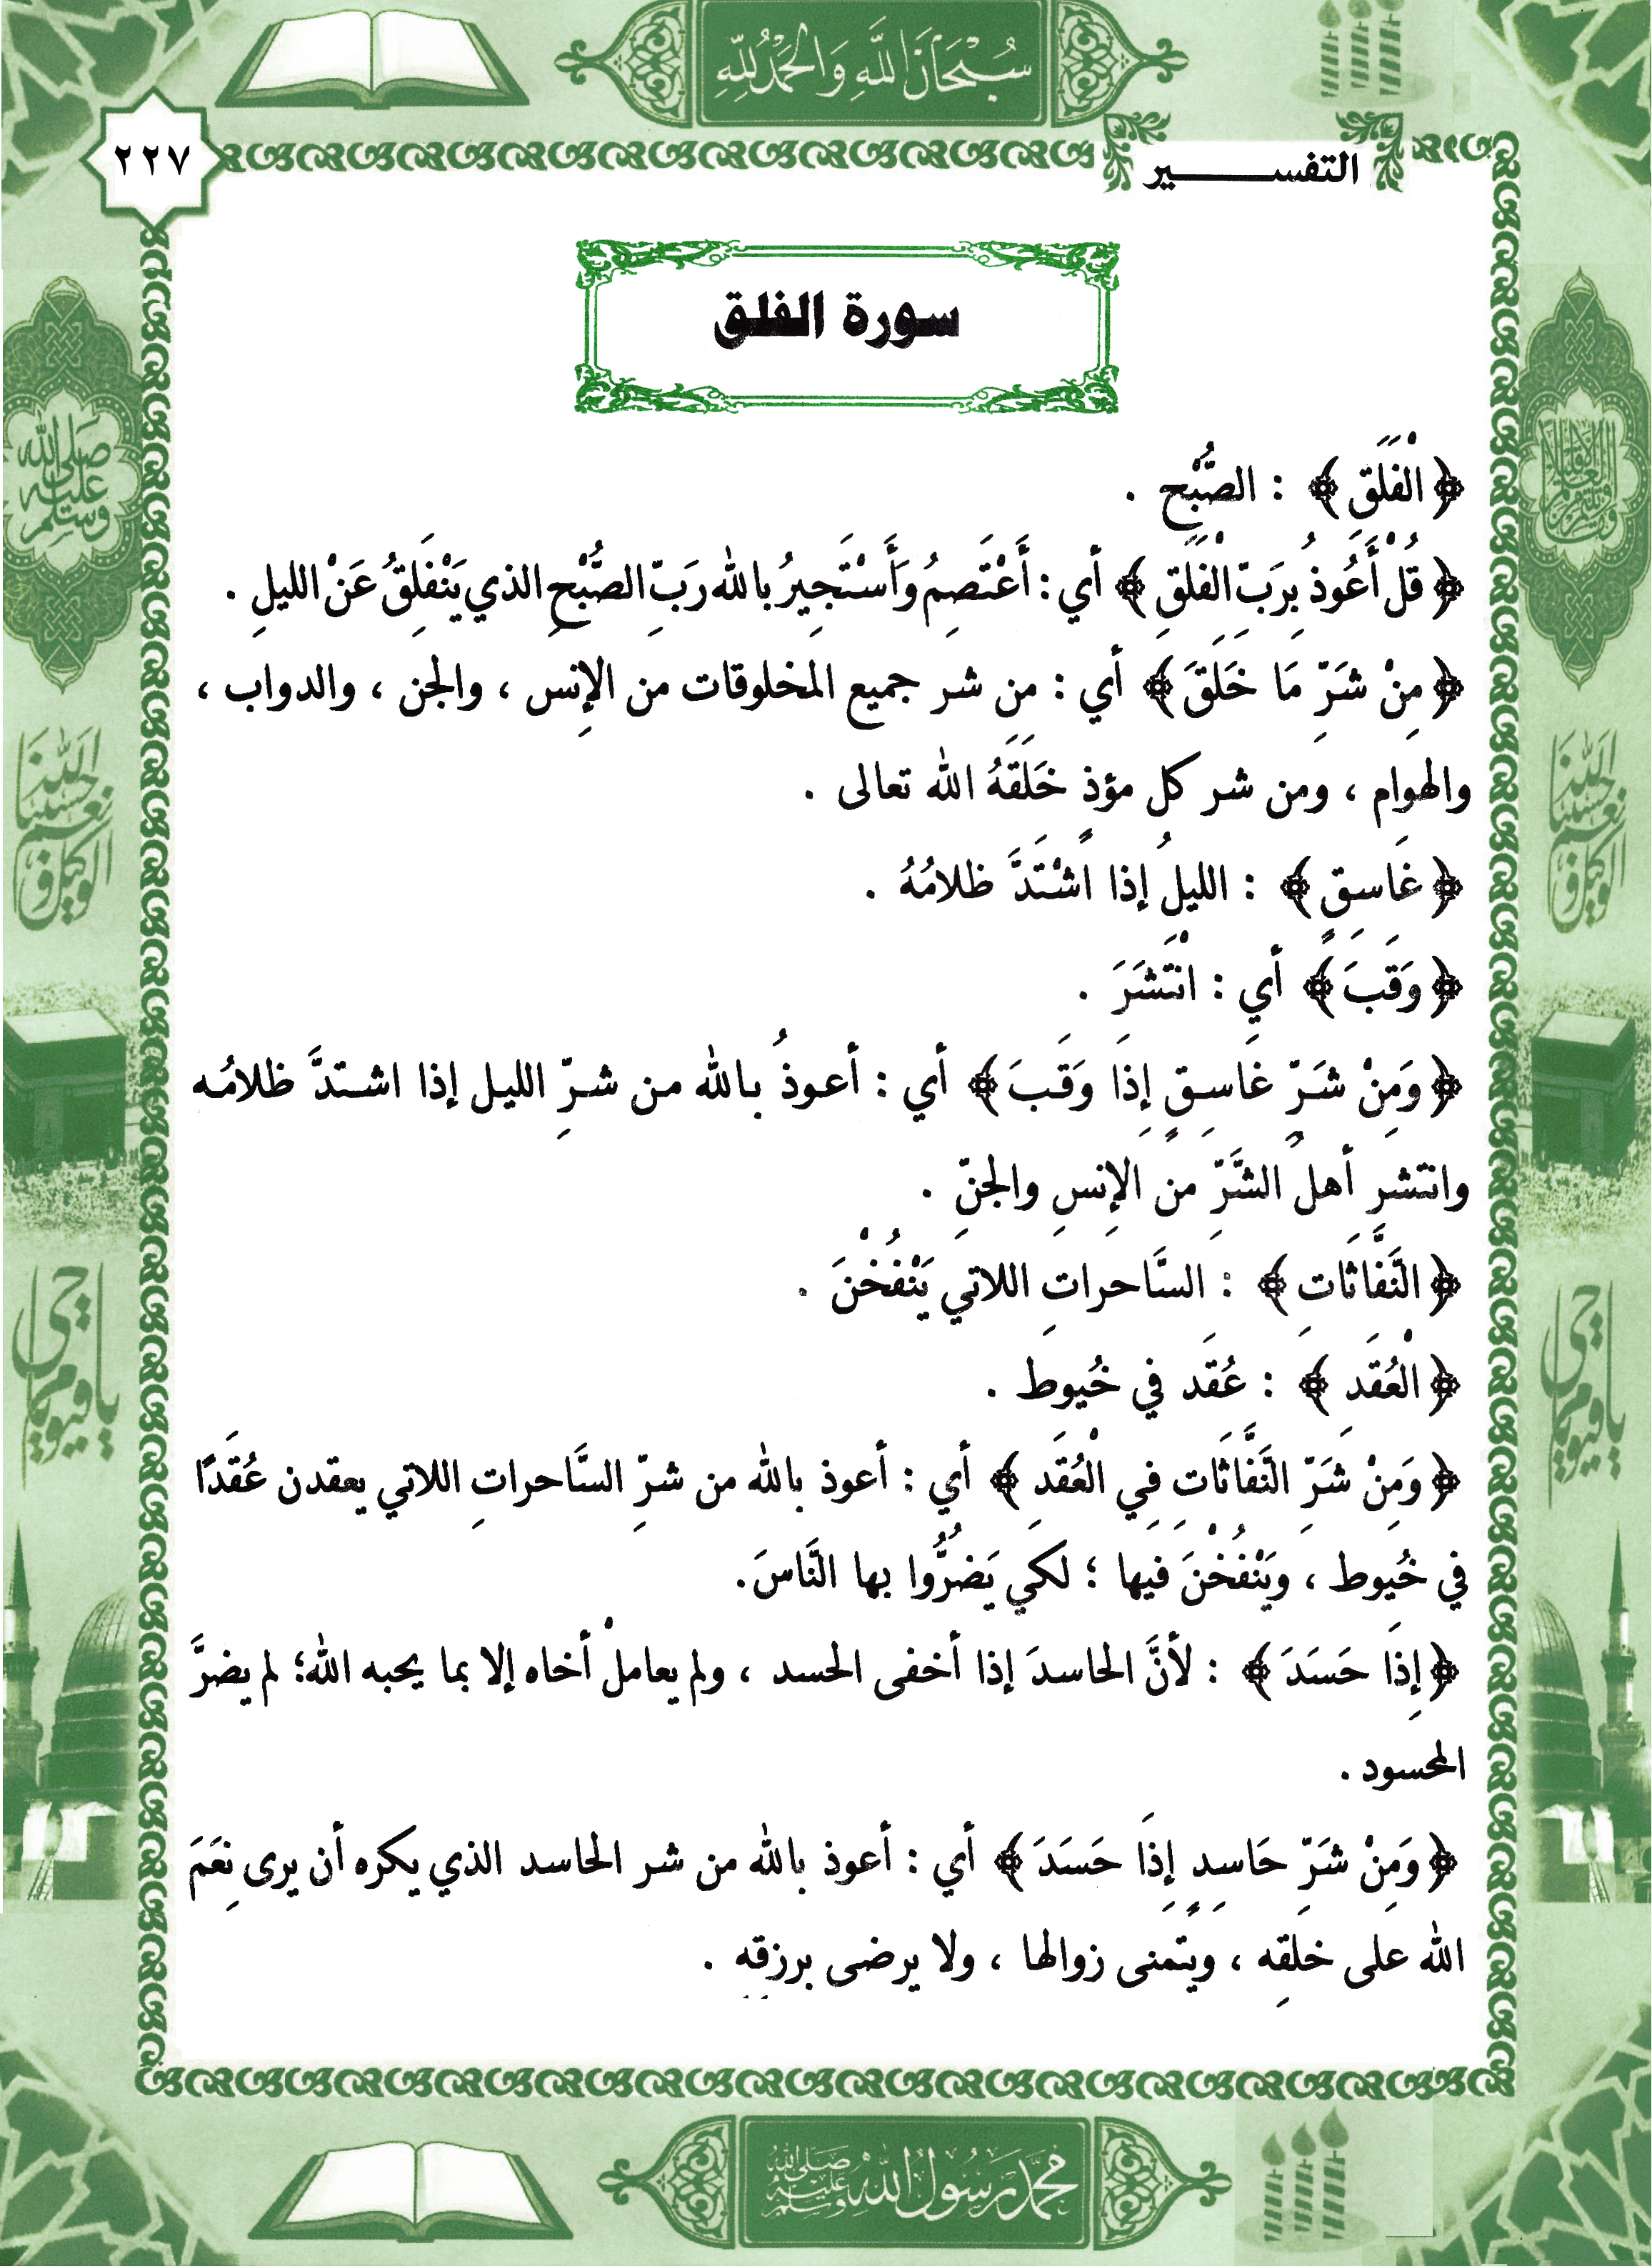 سُبْحَانَ اللَّهِ وَالْحَمْدُ لِلَّهِ
٢٢٧
التفســـــير
سورة الفلق
﴿الْفَلَقِ﴾ : الصُّبْحِ .
﴿قُلْ أَعُوذُ بِرَبِّ الْفَلَقِ ﴾ أي : أَعْتَصِمُ وَأَسْتَجِيرُ بالله رَبِّ الصُّبْحِ الذي يَنْفَلِقُ عَنْ الليلِ .
﴿مِنْ شَرِّ مَا خَلَقَ﴾ أي : من شر جميع المخلوقات من الإِنس ، والجن ، والدواب ،
والهوام ، ومن شر كل مؤذٍ خَلَقَهُ الله تعالى .
﴿غَاسِقٍ﴾ : الليلُ إذا اشْتَدَّ ظلامُهُ .
﴿وَقَبَ﴾ أي : انْتَشَرَ .
﴿وَمِنْ شَرِّ غَاسِقٍ إِذَا وَقَبَ﴾ أي : أعوذُ بالله من شرِّ الليل إذا اشتدَّ ظلامُه
وانتشر أهل الشَّرِّ من الإِنسِ والجنِّ .
﴿النَّفَّاثَاتِ ﴾ : السَّاحراتِ اللاتي يَنْفُخْنَ .
﴿الْعُقَد ﴾ : عُقَد في خُيوط .
﴿وَمِنْ شَرِّ النَّفَّاثَاتِ فِي الْعُقَدِ ﴾ أي : أعوذ بالله من شرِّ السَّاحراتِ اللاتي يعقدن عُقَدًا
في خُيوط ، ويَنْفُخْنَ فيها ؛ لكي يَضُرُّوا بها النَّاسَ.
﴿إِذَا حَسَدَ ﴾ : لأنَّ الحاسدَ إذا أخفى الحسد ، ولم يعاملْ أخاه إلا بما يحبه الله؛ لم يضرَّ
المحسود .
﴿وَمِنْ شَرِّ حَاسِدٍ إِذَا حَسَدَ﴾ أي : أعوذ بالله من شر الحاسد الذي يكره أن يرى نِعَمَ
الله على خلقِه ، ويتمنى زوالها ، ولا يرضى برزقه .
صلى الله عليه وسلم
حسبنا الله ونعم الوكيل
يا حي يا قيوم
حسبنا الله ونعم الوكيل
يا حي يا قيوم
محمد رسول الله صلى الله عليه وسلم